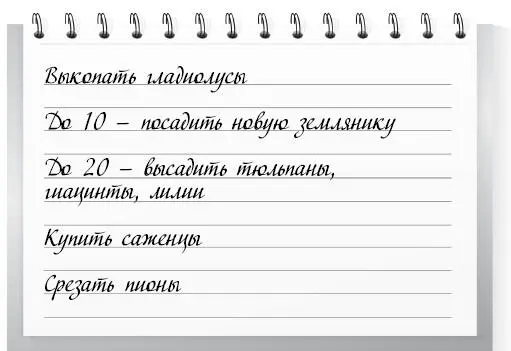 Выкопать гладиолусы
До 10 – посадить новую землянику
До 20 – высадить тюльпаны,
гиацинты, лилии
Купить саженцы
Срезать пионы